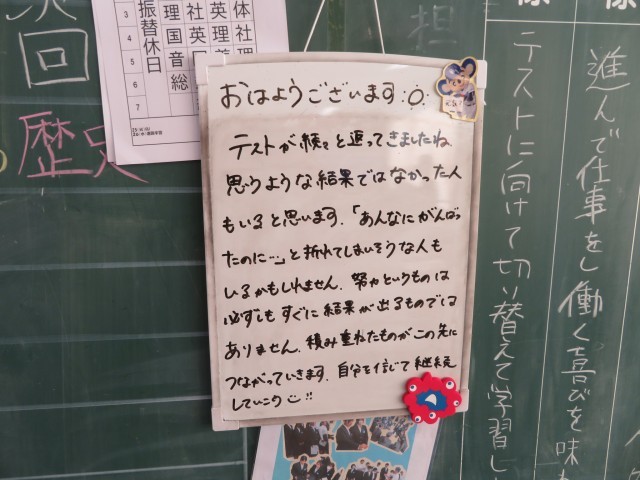 おはようございます
テストが続々と返ってきましたね
思うような結果ではなかった人
もいると思います．「あんなにがんばっ
たのに…」と折れてしまいそうな人も
いるかもしれません．努力というものは
必ずしもすぐに結果が出るものでは
ありません．積み重ねたものがこの先に
つながっていきます．自分を信じて継続
していこう
進んで仕事をし働く喜びを味
テストに向けて切り替えて学習し
体社理
英理美
社英
理国音総
振替休日
3
4
5
6
7
回
歴史